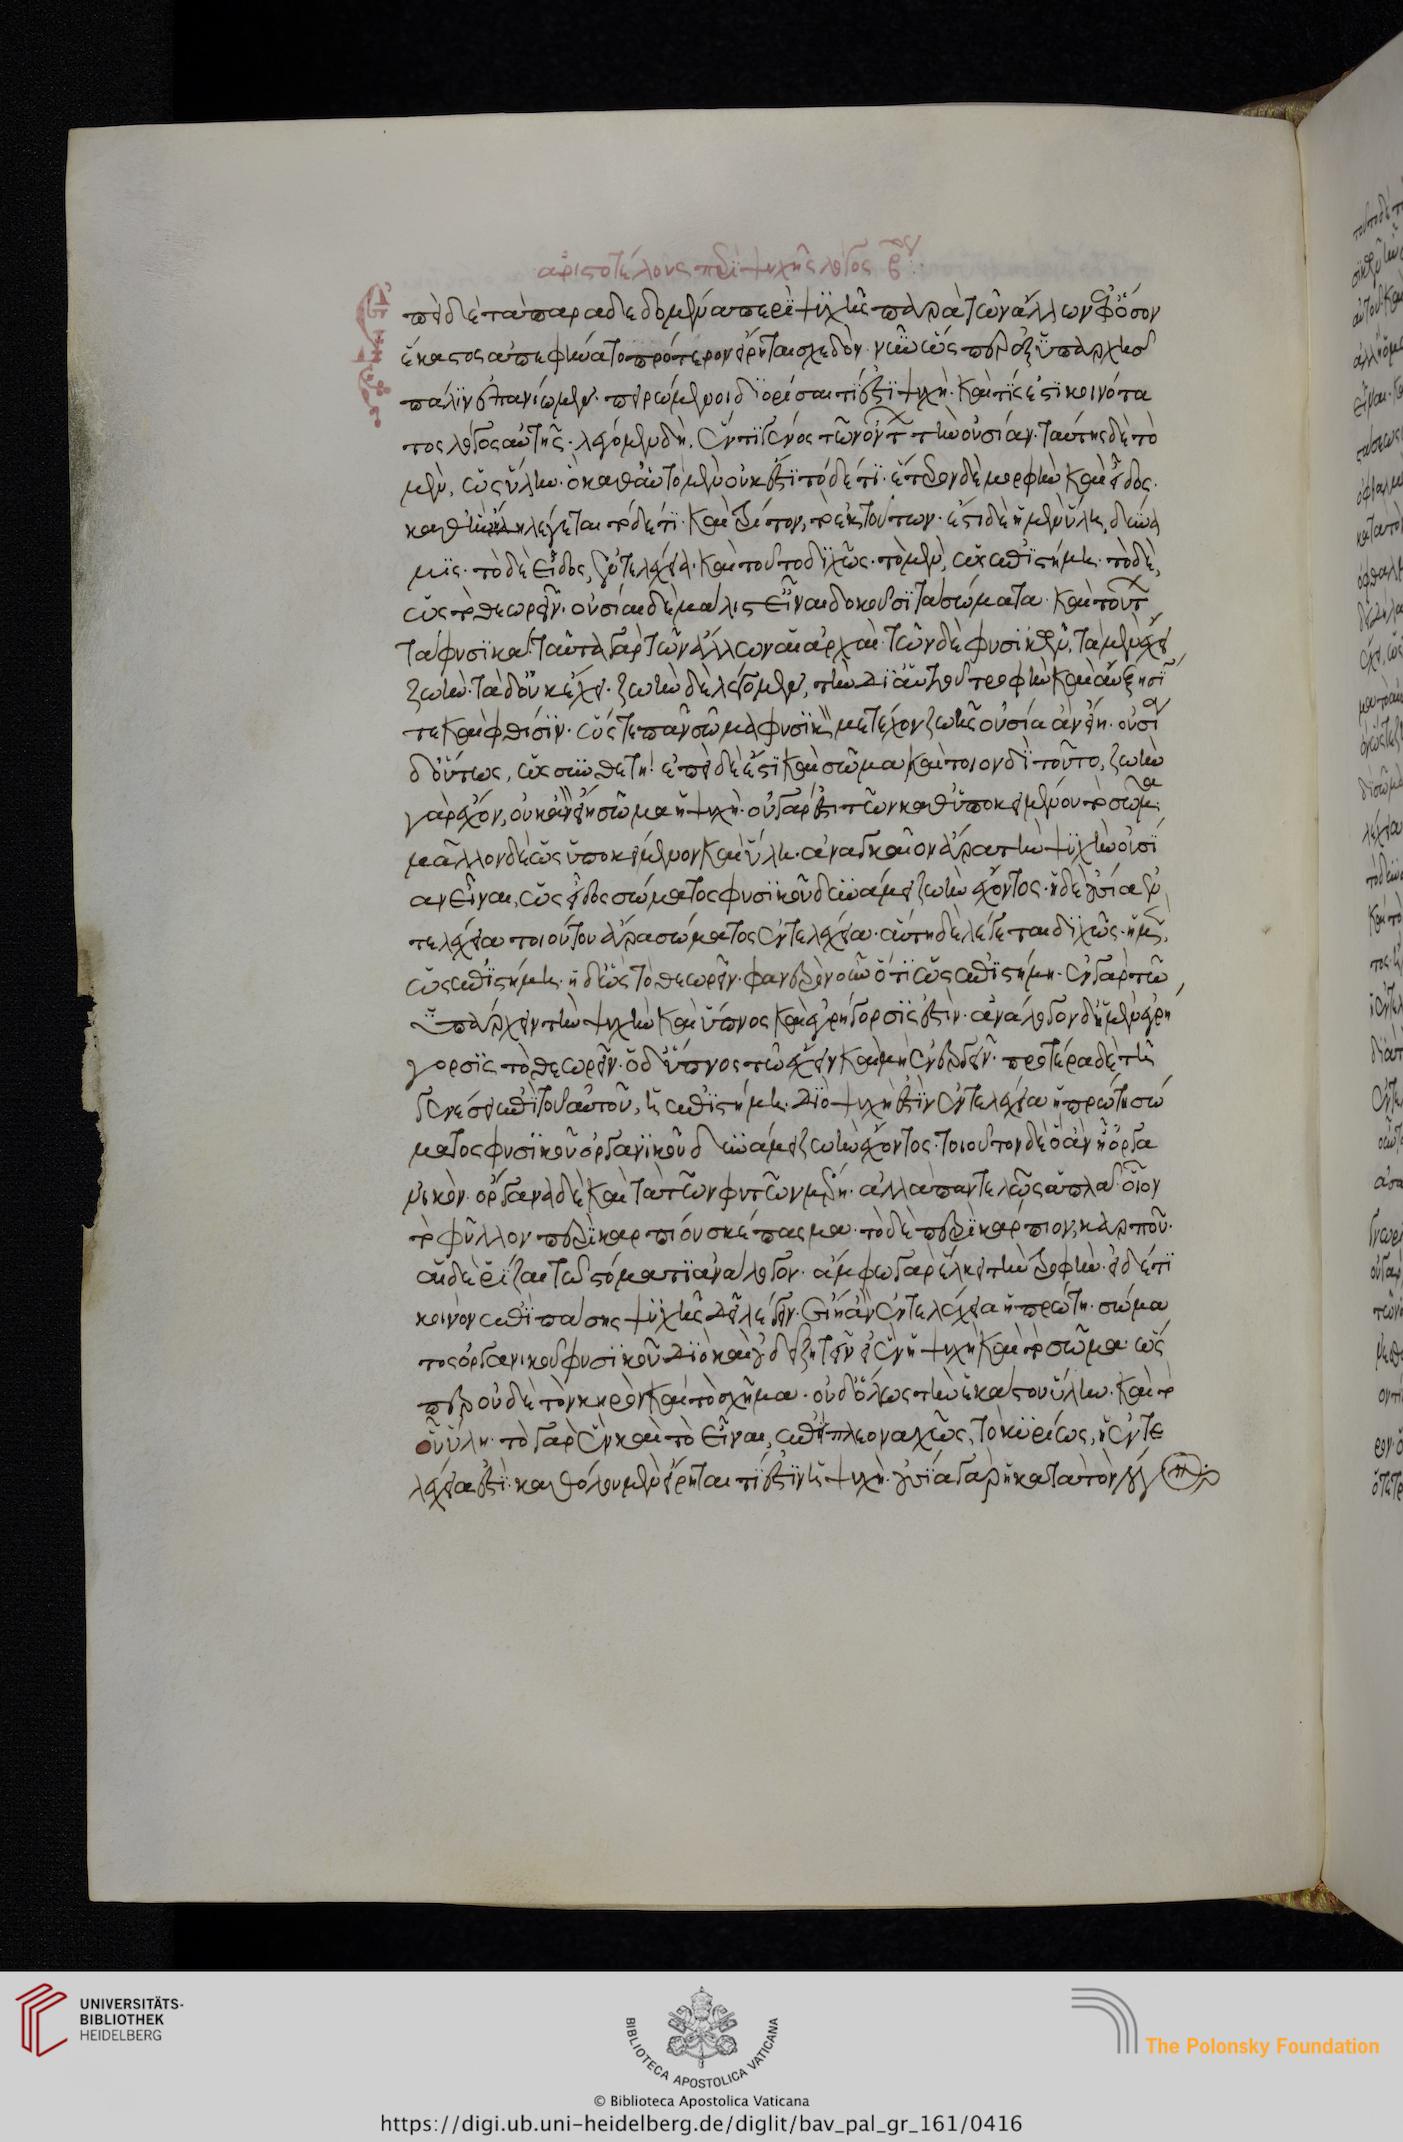 ἀριστοτέλους περὶ ψυχῆς λόγος β
ἐπεὶ δὲ τὰ παραδεδομένα περὶ ψυχῆς παρὰ τῶν ἄλλων ἐφ' ὅσον
ἕκαστος ἀπεφήνατο πρότερον εἴρηται σχεδὸν· νῦν ὥσπερ ἐξ ὑπαρχῆς
πάλιν ἐπανίωμεν· πειρώμενοι διορίσαι τί ἐστι ψυχὴ· καὶ τίς ἔτι κοινότα
τος λόγος αὐτῆς· λέγομεν δὴ, ἕν τι γένος τῶν ὄντων τὴν οὐσίαν· ταύτης δὲ τὸ
μὲν, ὡς ὕλην· ὃ καθ' αὑτὸ μὲν οὐκ ἔστι τόδέ τι· ἕτερον δὲ μορφὴν καὶ εἶδος·
καθ' ἣν ἤδη λέγεται τόδέ τι· καὶ τρίτον, τὸ ἐκ τούτων· ἔτι δὲ ἡ μὲν ὕλη, δύνα
μις· τὸ δὲ εἶδος, ἐντελέχεια· καὶ τοῦτο διχῶς· τὸ μὲν, ὡς ἐπιστήμη· τὸ δὲ,
ὡς τὸ θεωρεῖν· οὐσίαι δὲ μάλιστ εἶναι δοκοῦσι τὰ σώματα· καὶ τούτων
τὰ φυσικά· ταῦτα γὰρ τῶν ἄλλων ἀρχαὶ· τῶν δὲ φυσικῶν, τὰ μὲν ἔχει
ζωὴν· τὰ δ' οὐκ ἔχει· ζωὴν δὲ λέγομεν, τὴν δι' αὑτοῦ τροφὴν καὶ αὔξησίν
τε καὶ φθίσιν· ὥστε πᾶν σῶμα φυσικὸν μετέχον ζωῆς οὐσία ἂν εἴη· οὐσία
δ' οὕτως, ὡς συνθέτη· ἐπεὶ δέ ἐστι καὶ σῶμα καὶ τοιονδὶ τοῦτο, ζωὴν
γὰρ ἔχον, οὐκ ἂν εἴη σῶμα ἡ ψυχὴ· οὐ γάρ ἐστι τῶν καθ' ὑποκειμένου τὸ σῶμα·
μᾶλλον δὲ ὡς ὑποκείμενον καὶ ὕλη· ἀναγκαῖον ἄρα τὴν ψυχὴν οὐσί
αν εἶναι, ὡς εἶδος σώματος φυσικοῦ δυνάμει ζωὴν ἔχοντος· ἡ δὲ οὐσία ἐν
τελέχεια τοιούτου ἄρα σώματος ἐντελέχεια· αὕτη δὲ λέγεται διχῶς· ἡ μὲν,
ὡς ἐπιστήμη· ἡ δ' ὡς τὸ θεωρεῖν· φανερὸν οὖν ὅτι ὡς ἐπιστήμη· ἐν γὰρ τῷ
ὑπάρχειν τὴν ψυχὴν καὶ ὕπνος καὶ ἐγρήγορσίς ἐστιν· ἀνάλογον δ' ἡ μὲν ἐγρή
γορσις τὸ θεωρεῖν· ὁ δ' ὕπνος τῷ ἔχειν καὶ μὴ ἐνεργεῖν· προτέρα δὲ τῇ
γενέσει ἐπὶ τοῦ αὐτοῦ, ἡ ἐπιστήμη· διὸ ψυχή ἐστιν ἐντελέχεια ἡ πρώτη σώ
ματος φυσικοῦ ὀργανικοῦ δυνάμει ζωὴν ἔχοντος· τοιοῦτον δὲ ὃ ἂν ᾖ ὀργα
νικὸν· ὄργανα δὲ καὶ τὰ τῶν φυτῶν μέρη· ἀλλὰ παντελῶς ἁπλᾶ· οἷον
τὸ φύλλον περικαρπίου σκέπασμα· τὸ δὲ περικάρπιον, καρποῦ·
αἱ δὲ ῥίζαι τῷ στόματι ἀνάλογον· ἄμφω γὰρ ἕλκει τὴν τροφὴν· εἰ δέ τι
κοινὸν ἐπὶ πάσης ψυχῆς δεῖ λέγειν· εἴη ἂν ἐντελέχεια ἡ πρώτη· σώμα
τος ὀργανικοῦ φυσικοῦ· διὸ καὶ οὐ δεῖ ζητεῖν εἰ ἓν ἡ ψυχὴ καὶ τὸ σῶμα· ὥς
περ οὐδὲ τὸν κηρὸν καὶ τὸ σχῆμα· οὐδ' ὅλως τὴν ἑκάστου ὕλην· καὶ τὸ
οὗ ὕλη· τὸ γὰρ ἓν καὶ τὸ εἶναι, ἐπεὶ πλεοναχῶς, τὸ κυρίως, ἡ ἐντε
λέχειά ἐστι· καθόλου μὲν εἴρηται τί ἐστιν ἡ ψυχὴ· οὐσία γὰρ ἡ κατὰ τὸν λόγον
UNIVERSITÄTS-
BIBLIOTHEK
HEIDELBERG
BIBLIOTECA APOSTOLICA VATICANA
The Polonsky Foundation
© Biblioteca Apostolica Vaticana
https://digi.ub.uni-heidelberg.de/diglit/bav_pal_gr_161/0416